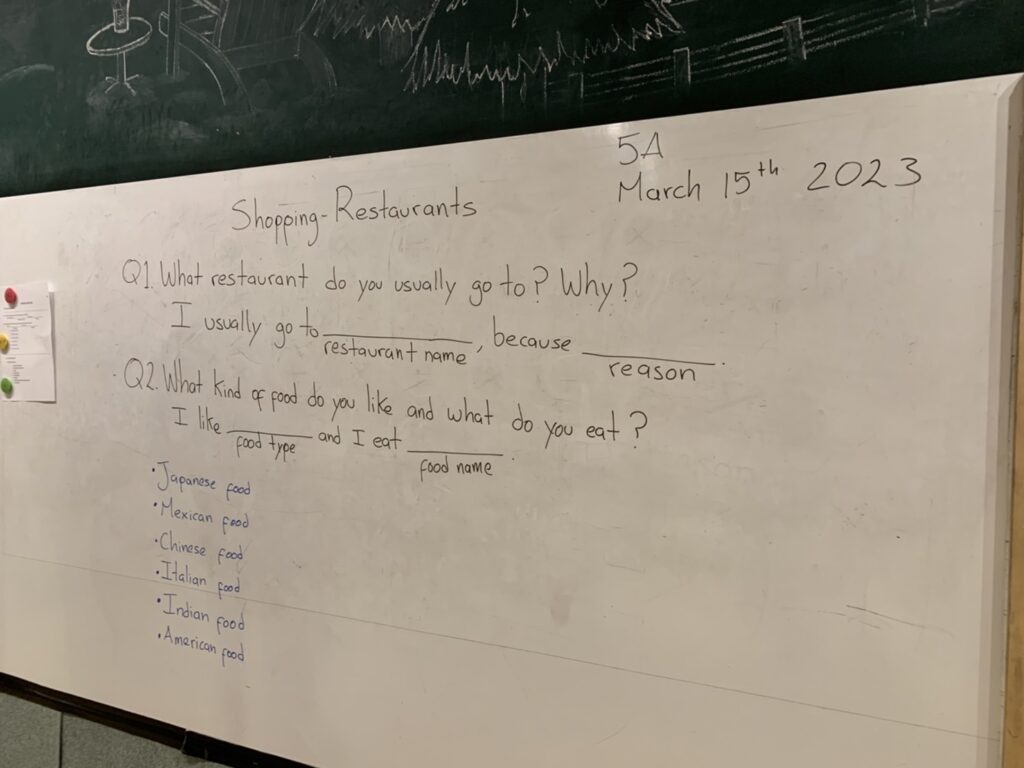 5A
March 15th 2023
Shopping-Restaurants
Q1. What restaurant do you usually go to? Why?
I usually go to ________, because ________.
restaurant name reason
Q2. What kind of food do you like and what do you eat?
I like ________ and I eat ________.
food type food name
• Japanese food
• Mexican food
• Chinese food
• Italian food
• Indian food
• American food